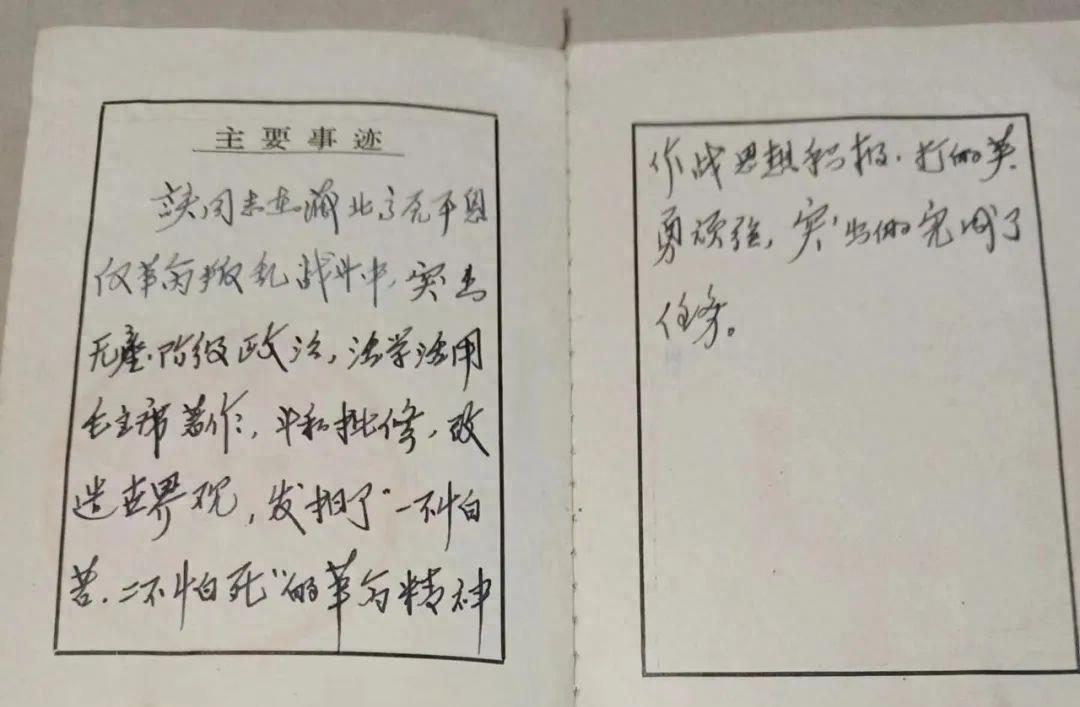 主要事迹
该同志在藏北高原平息
反革命叛乱战斗中，突出
无产阶级政治，活学活用
毛主席著作，斗私批修，改
造世界观，发扬了“一不怕
苦，二不怕死”的革命精神
作战思想积极，打的英
勇顽强，突出的完成了
任务。